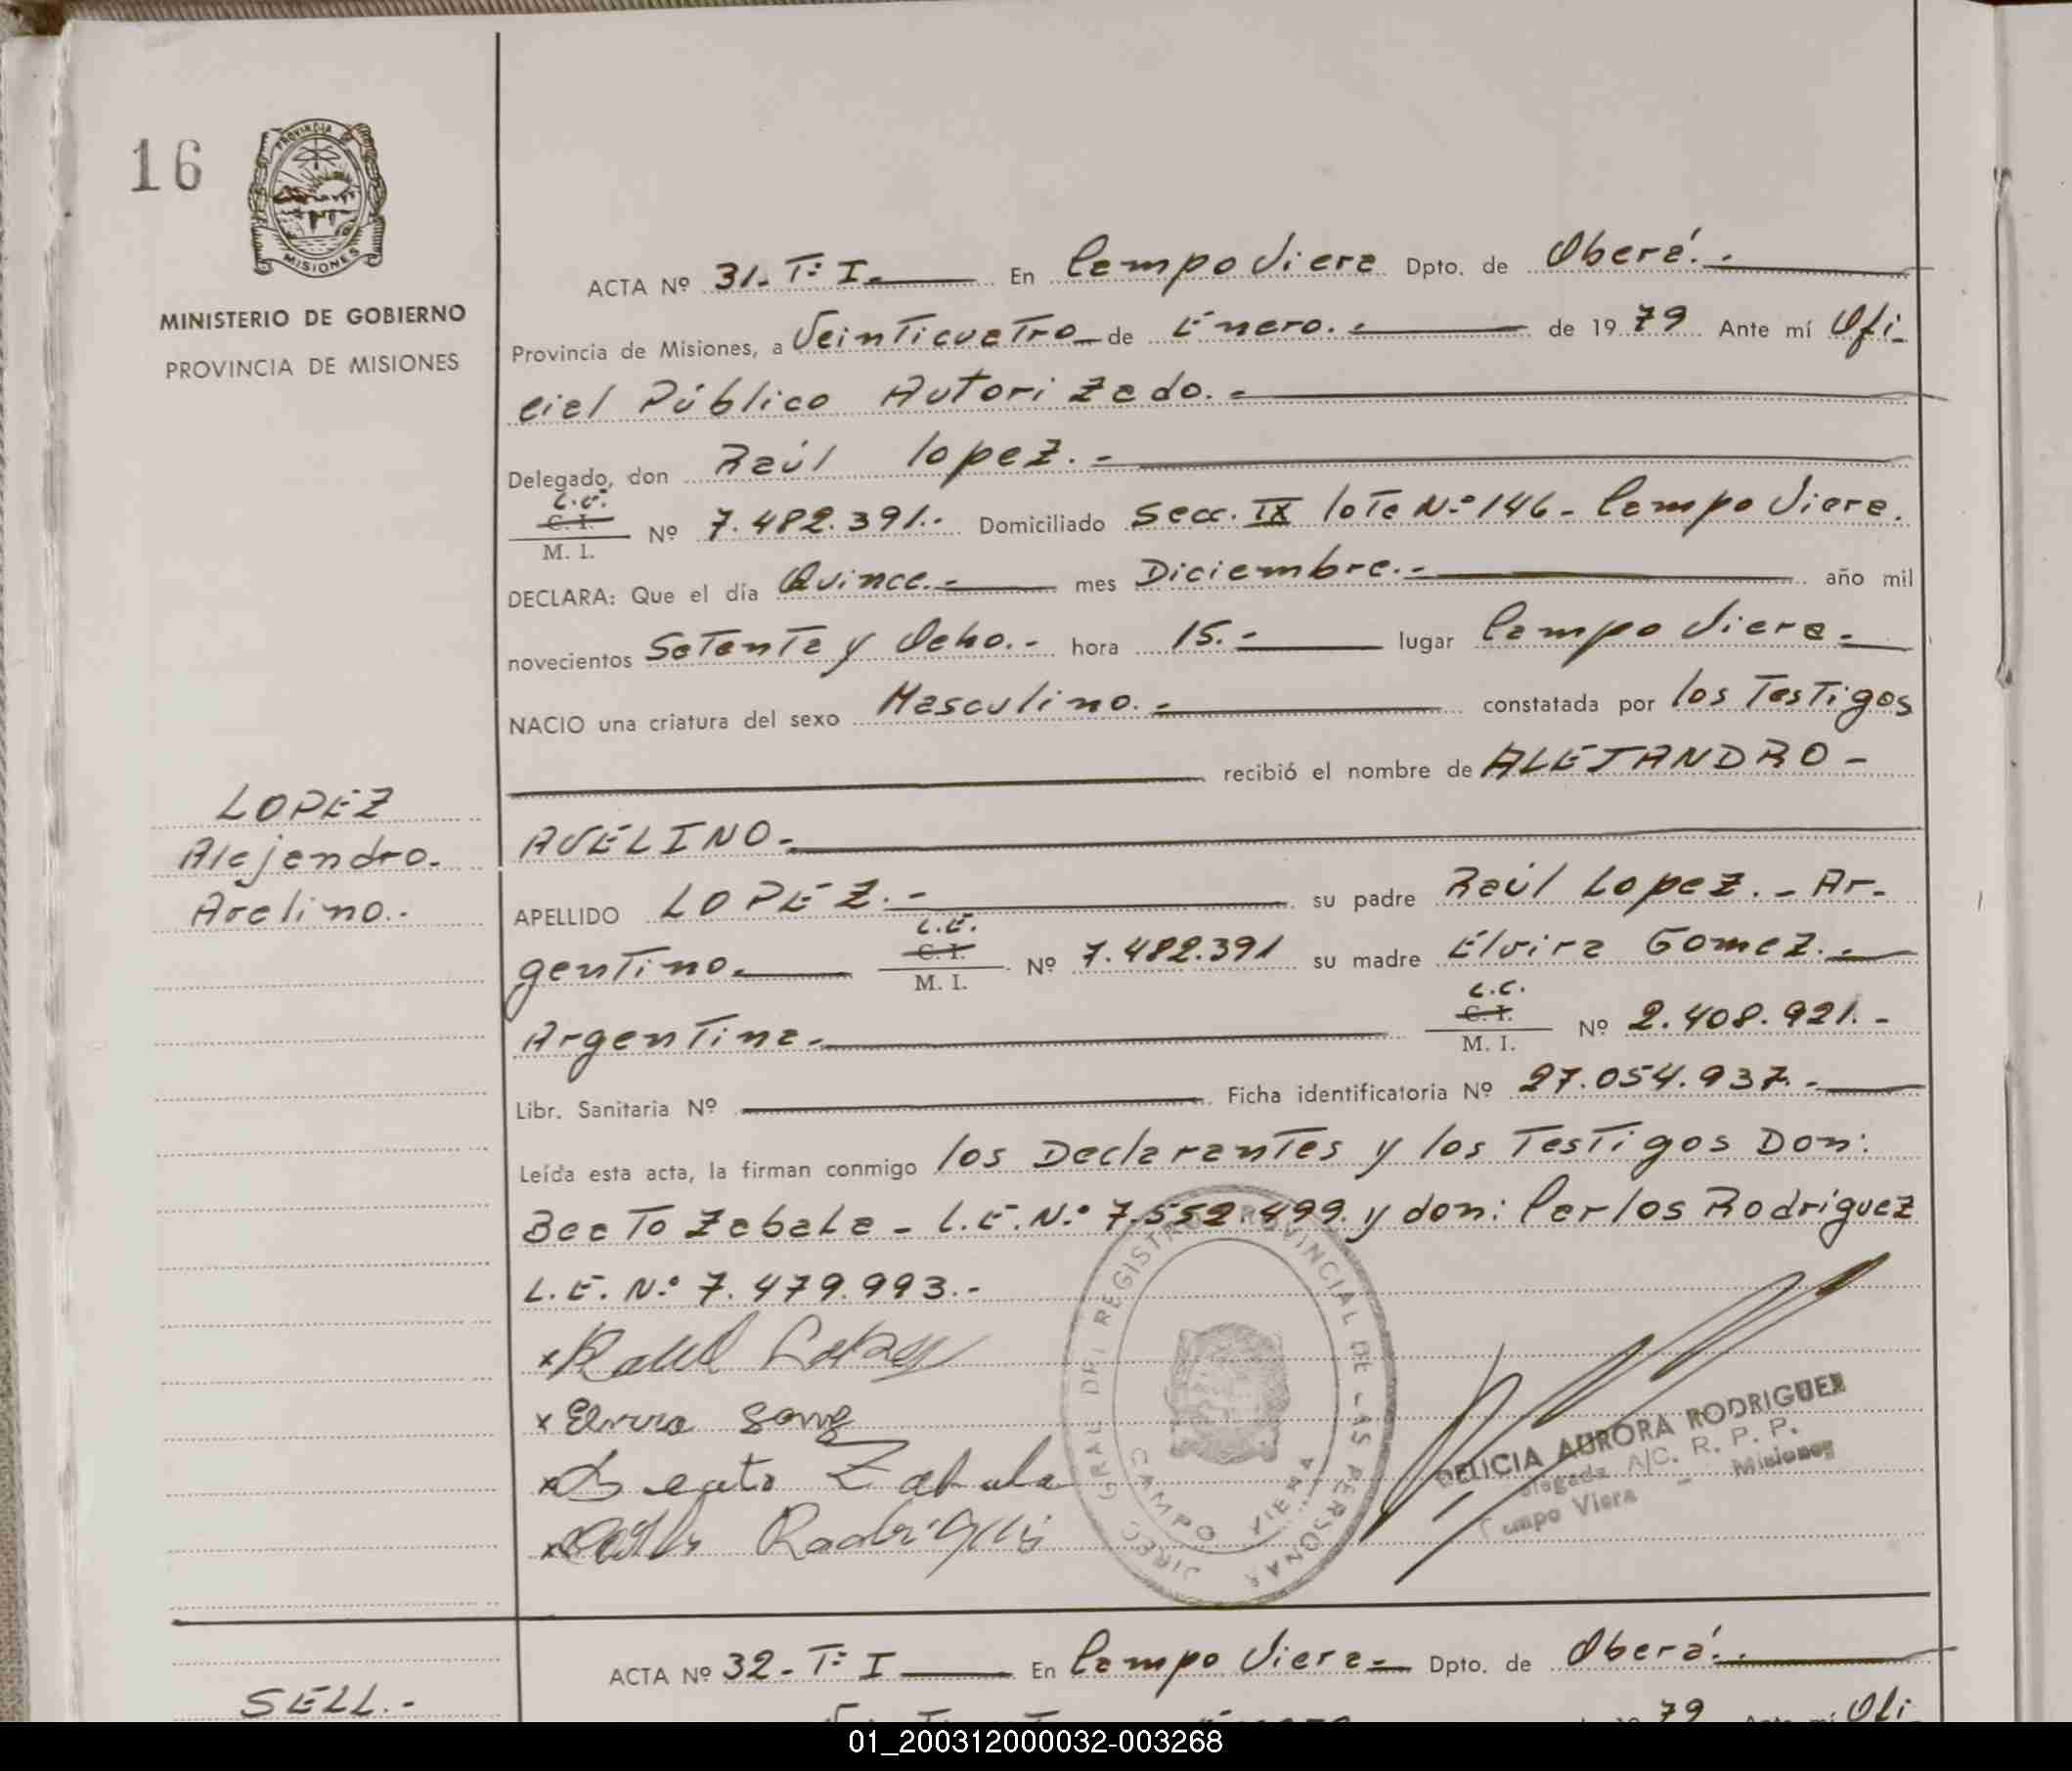 16
PROVINCIA DE
MISIONES
MINISTERIO DE GOBIERNO
PROVINCIA DE MISIONES
ACTA Nº 31.- Tº I.- En Campo Viera Dpto. de Oberá.-
Provincia de Misiones, a Veinticuatro de Enero.- de 1979 Ante mí Ofi-
cial Público Autorizado.-
Delegado, don Raúl Lopez.-
L.E.
C. I.
M. I.
Nº 7.482.391.- Domiciliado Secc. IX lote Nº 146 - Campo Viera.
DECLARA: Que el día Quince.- mes Diciembre.- año mil
novecientos Setenta y Ocho.- hora 15.- lugar Campo Viera-
NACIO una criatura del sexo Masculino.- constatada por los Testigos
recibió el nombre de ALEJANDRO-
AVELINO.-
LOPEZ
Alejandro.
Avelino.-
APELLIDO LOPEZ.- su padre Raúl Lopez.- Ar-
gentino. L.E.
C. I.
M. I.
Nº 7.482.391 su madre Elvira Gomez.-
Argentina.- L.C.
C. I.
M. I.
Nº 2.408.921.-
Libr. Sanitaria Nº Ficha identificatoria Nº 27.054.937.-
Leída esta acta, la firman conmigo los Declarantes y los Testigos Don:
Beato Zabala - L.E. Nº 7.552.499. y don: Carlos Rodríguez
L.E. Nº 7.479.993.-
x Raul Lopez
x Elvira
x Beato Zabala
x
DIREC. GRAL. DEL REGISTRO PROVINCIAL DE LAS PERSONAS
CAMPO VIERA
DELICIA AURORA RODRIGUEZ
Delegada A/C. R. P. P.
Campo Viera - Misiones
ACTA Nº 32.- Tº I En Campo Viera- Dpto. de Oberá.-
SELL.-
79 Ofi
01_200312000032-003268